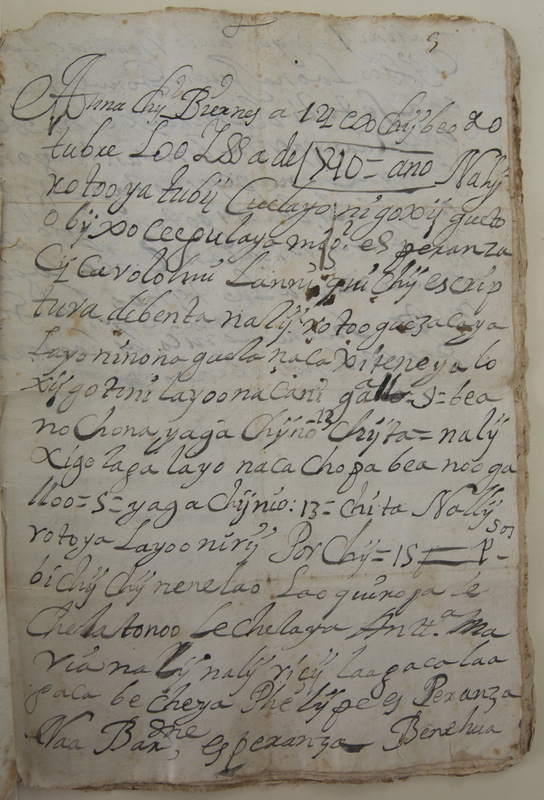 5
Anna chij Biernes a 14 coo chij beo xo
tubre Loo Iss a de 1710= ano Nalij
xotoo ya tubij Cuelayo nigoxij queto
o bij xo ceequlaya migl esperanza
Cij Carolo mi Lanni qui chij escrip
tura debenta nalij xotoo guezalaya
Layo ninona guela naca xiteneya lo
xij gotini layoo nacani gallo=5=bea
no Chona yaga chijno 13 chijta= nalij
xigo laga layo naca chopa bea nooga
lloo=5=yaga chijnio: 13= chita Nallij
rotoya Layoo nirij Por Chij=15 = Psos
bichij chij nenelao Lao quiropa le
chela tonoo Lechelaya Antta Ma
ria nalij nalij ricij laapaca laa
paca becheya Phelijpe es Peranza
Naa Barme esperanza Benehua